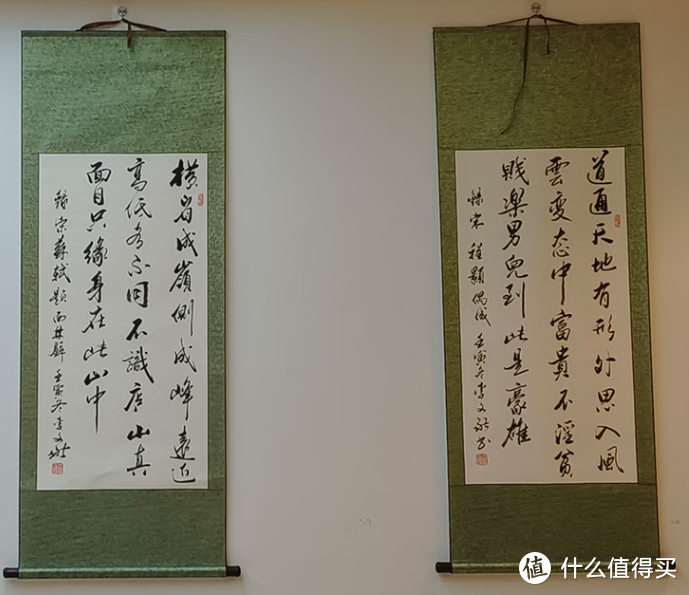 道通天地有形外思入風
雲變态中富貴不淫貧
賤樂男兒到此是豪雄
錄宋程顥偶成壬寅冬李文書
橫看成嶺側成峰遠近
高低各不同不識庐山真
面目只緣身在此山中
錄宋蘇軾題西林壁壬寅冬李文
值 什么值得买